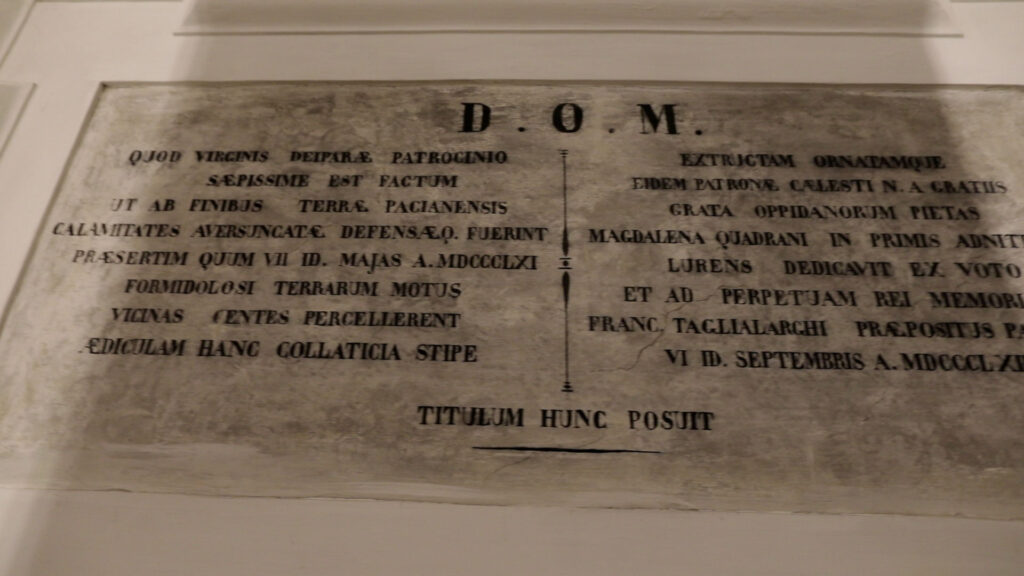 D. O. M.
QUOD VIRGINIS DEIPARÆ PATROCINIO
SÆPISSIME EST FACTUM
UT AB FINIBUS TERRÆ PACIANENSIS
CALAMITATES AVERSUNCATÆ DEFENSÆQ. FUERINT
PRÆSERTIM QUUM VII ID. MAJAS A. MDCCCLXI
FORMIDOLOSI TERRARUM MOTUS
VICINAS GENTES PERCELLERENT
ÆDICULAM HANC COLLATICIA STIPE
EXTRUCTAM ORNATAMQUE
EIDEM PATRONÆ CÆLESTI N. A GRATIIS
GRATA OPPIDANORUM PIETAS
MAGDALENA QUADRANI IN PRIMIS
LURENS DEDICAVIT EX VOTO
ET AD PERPETUAM REI
FRANC. TAGLIALARGHI PRÆPOSITUS
VI ID. SEPTEMBRIS A.
TITULUM HUNC POSUIT